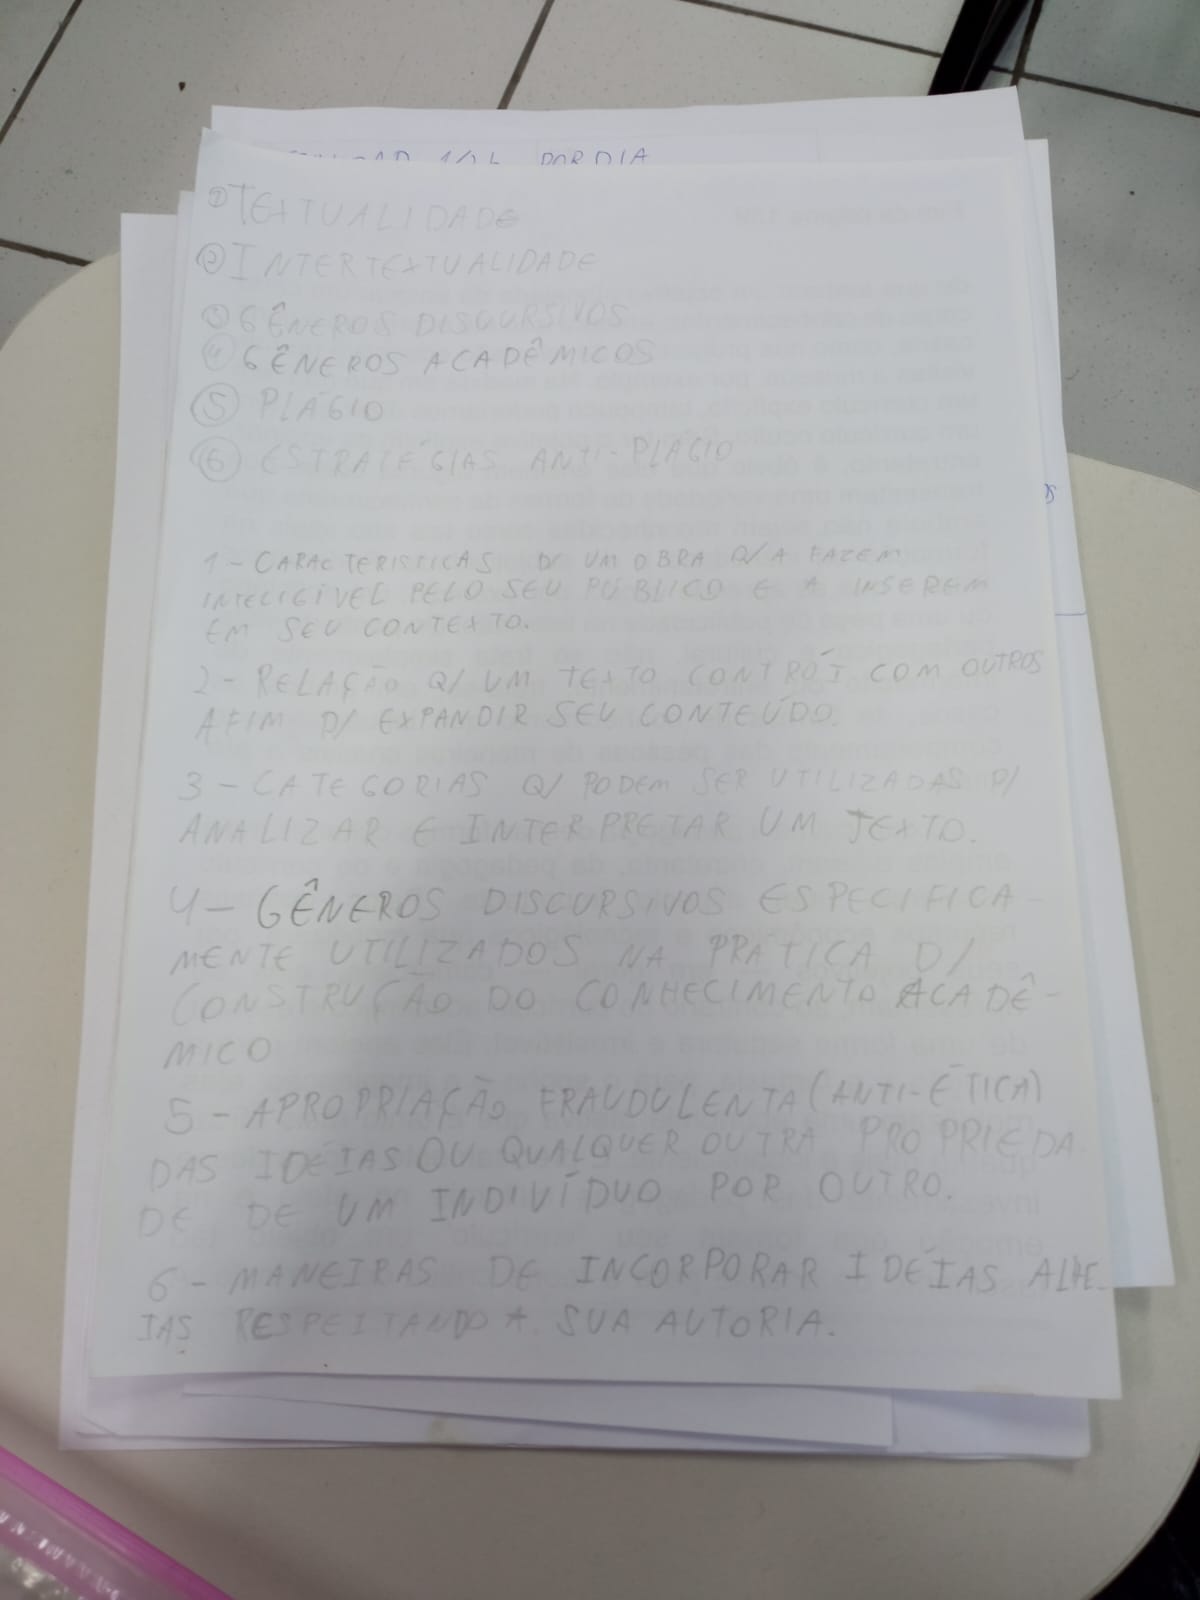 POR DIA
① TEXTUALIDADE
② INTERTEXTUALIDADE
③ GÊNEROS DISCURSIVOS
④ GÊNEROS ACADÊMICOS
⑤ PLÁGIO
⑥ ESTRATÉGIAS ANTI-PLÁGIO
1 - CARACTERISTICAS D/ UM OBRA Q/ A FAZEM
INTELIGÍVEL PELO SEU PÚBLICO E A INSEREM
EM SEU CONTEXTO.
2 - RELAÇÃO Q/ UM TEXTO CONTRÓI COM OUTROS
AFIM D/ EXPANDIR SEU CONTEÚDO.
3 - CATEGORIAS Q/ PODEM SER UTILIZADAS P/
ANALIZAR E INTERPRETAR UM TEXTO.
4 - GÊNEROS DISCURSIVOS ESPECIFICA-
MENTE UTILIZADOS NA PRÁTICA D/
CONSTRUÇÃO DO CONHECIMENTO ACADÊ-
MICO
5 - APROPRIAÇÃO FRAUDULENTA (ANTI-ÉTICA)
DAS IDÉIAS OU QUALQUER OUTRA PROPRIEDA
DE DE UM INDIVÍDUO POR OUTRO.
6 - MANEIRAS DE INCORPORAR IDÉIAS ALHE-
IAS RESPEITANDO A SUA AUTORIA.